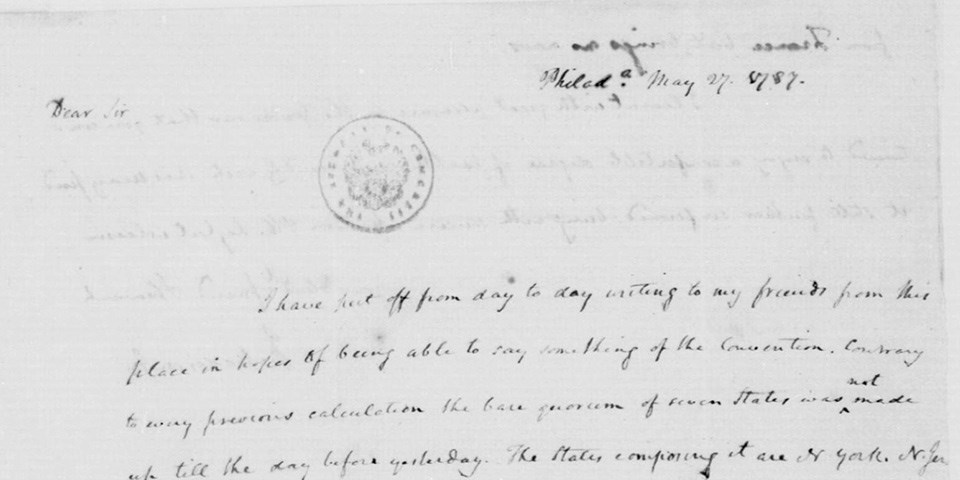 Philad.ª May 27. 1787.
Dear Sir
I have put off from day to day writing to my friends from this
place in hopes of being able to say something of the Convention. Contrary
to every previous calculation the bare quorum of seven States was not made
up till the day before yesterday. The States composing it are N York. N. Jer